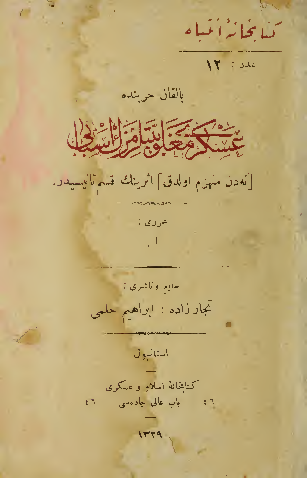 كتابخانهٔ انتباه
عدد : ١٢
بالقان حربنده
عسكرى مغلوبيتلرمزك اسبابى
[نه‌دن منهزم اولدق] اثرينك قسم ثانيسيدر.
محررى :
ا .
طابع و ناشرى :
تجار زاده : ابراهيم حلمى
استانبول
كتابخانهٔ اسلام و عسكرى
٤٦ باب عالى جاده‌سى ٤٦
١٣٢٩